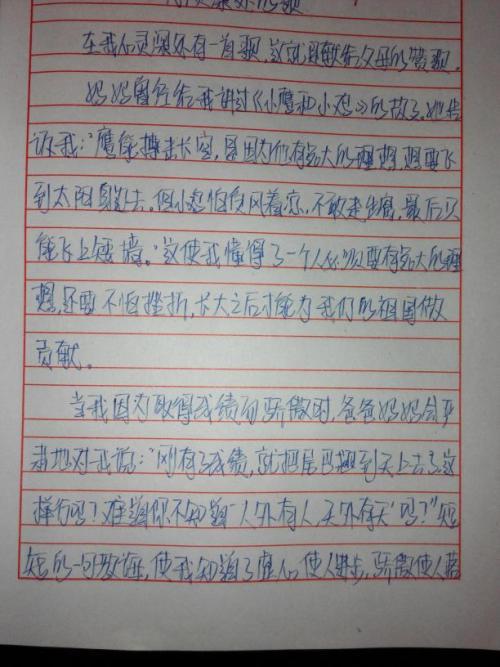 心灵深处的歌
在我心灵深处有一首歌,这就是献给父母的赞歌。
妈妈曾经给我讲过《小鹰和小鸡》的故事,她告
诉我:"鹰能搏击长空,是因为他有强大的理想,想要飞
到太阳身边去。但小鸡怕负风着凉,不敢走出窝,最后只
能飞上矮墙。"这使我懂得了一个人必须要有强大的理
想,还要不怕挫折,长大之后才能为我们的祖国做
贡献。
当我因为取得成绩而骄傲时,爸爸妈妈会严
肃地对我说:"刚有了成绩,就把尾巴翘到天上去了,这
样行吗?难道你不知道'人外有人,天外有天'吗?"短
短的一句教诲,使我知道了虚心使人进步,骄傲使人落